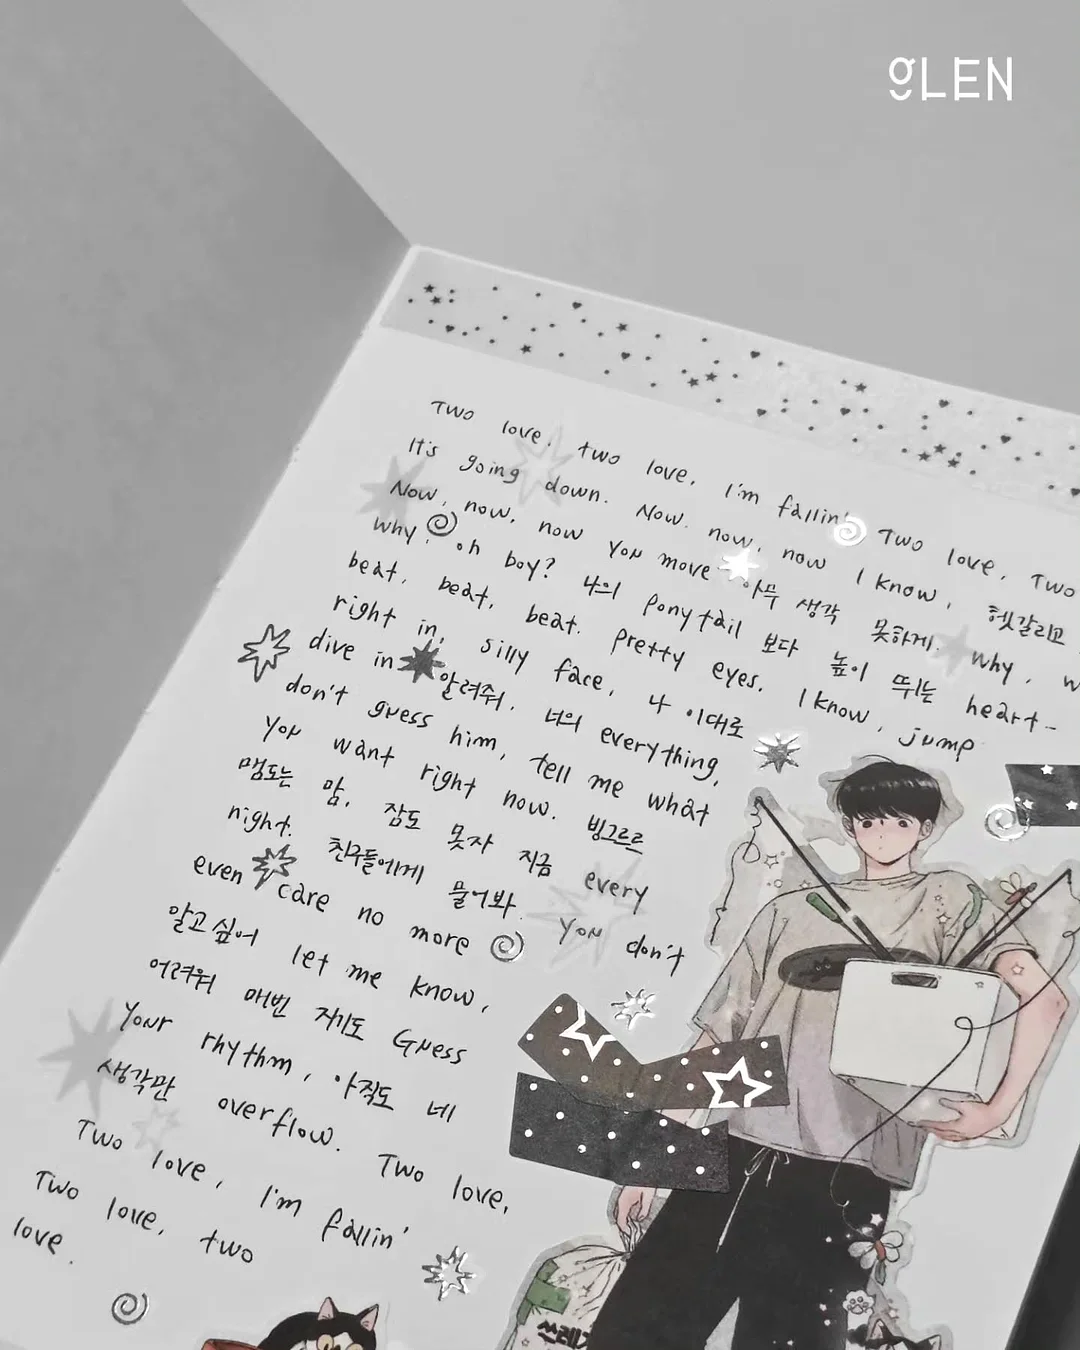 gLEN
Two love, two love, I'm fallin' Two love, Two
It's going down. Now. now, now I know, 헷갈리고
Now, now, now you move 아무 생각 못하게. Why, w
why, oh boy? 너의 ponytail 보다 높이 뛰는 heart-
beat, beat, beat. Pretty eyes. I know, jump
right in, silly face, 나 이대로
dive in 알려줘, 너의 everything,
don't guess him, tell me what
you want right now. 빙그르르
맴도는 맘, 잠도 못자 지금 every
right. 친구들에게 물어봐 You don't
even care no more
알고싶어 let me know,
어려워 매번 저기도 Guess
Your rhythm, 아직도 네
생각만 overflow. Two love,
Two love, I'm fallin'
Two love, two
love.
쓰레기